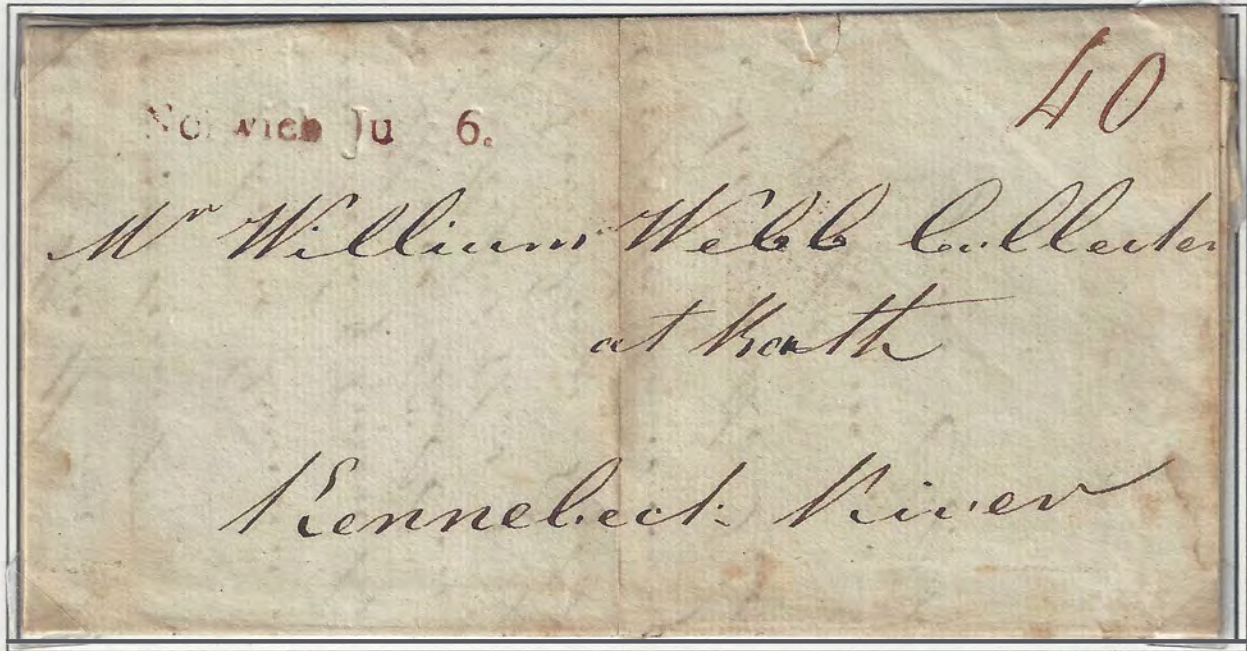 40
Norwich Ju 6.
Mr William Webb Collector
at Bath
Kennebeck River